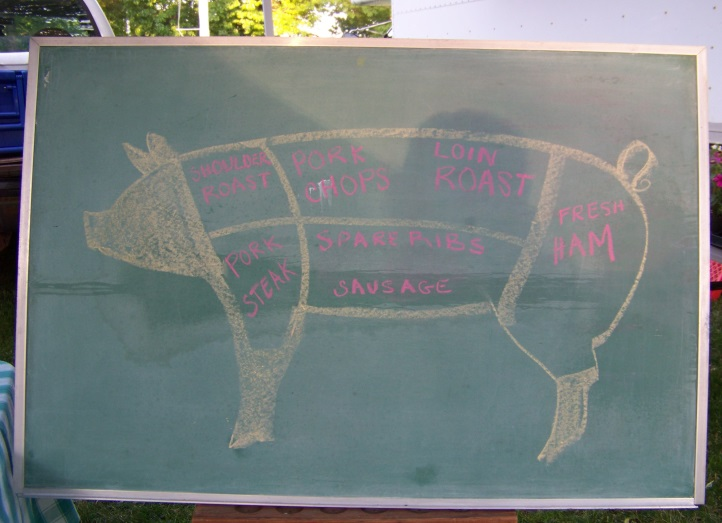 SHOULDER
ROAST
PORK
CHOPS
LOIN
ROAST
FRESH
HAM
PORK
STEAK
SPARE RIBS
SAUSAGE